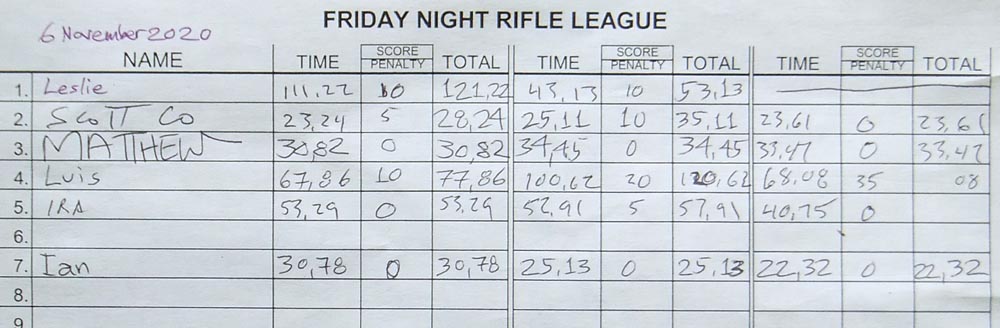 FRIDAY NIGHT RIFLE LEAGUE
6 November 2020
NAME TIME SCORE PENALTY TOTAL TIME SCORE PENALTY TOTAL TIME SCORE PENALTY TOTAL
1. Leslie 111,22 10 121,22 43,13 10 53,13
2. SCOTT CO 23,24 5 28,24 25,11 10 35,11 23,61 0 23,61
3. MATTHEW 30,82 0 30,82 34,45 0 34,45 33,47 0 33,47
4. Luis 67,86 10 77,86 100,62 20 120,62 68,08 35 08
5. IRA 53,29 0 53,29 52,91 5 57,91 40,75 0
6.
7. Ian 30,78 0 30,78 25,13 0 25,13 22,32 0 22,32
8.
9